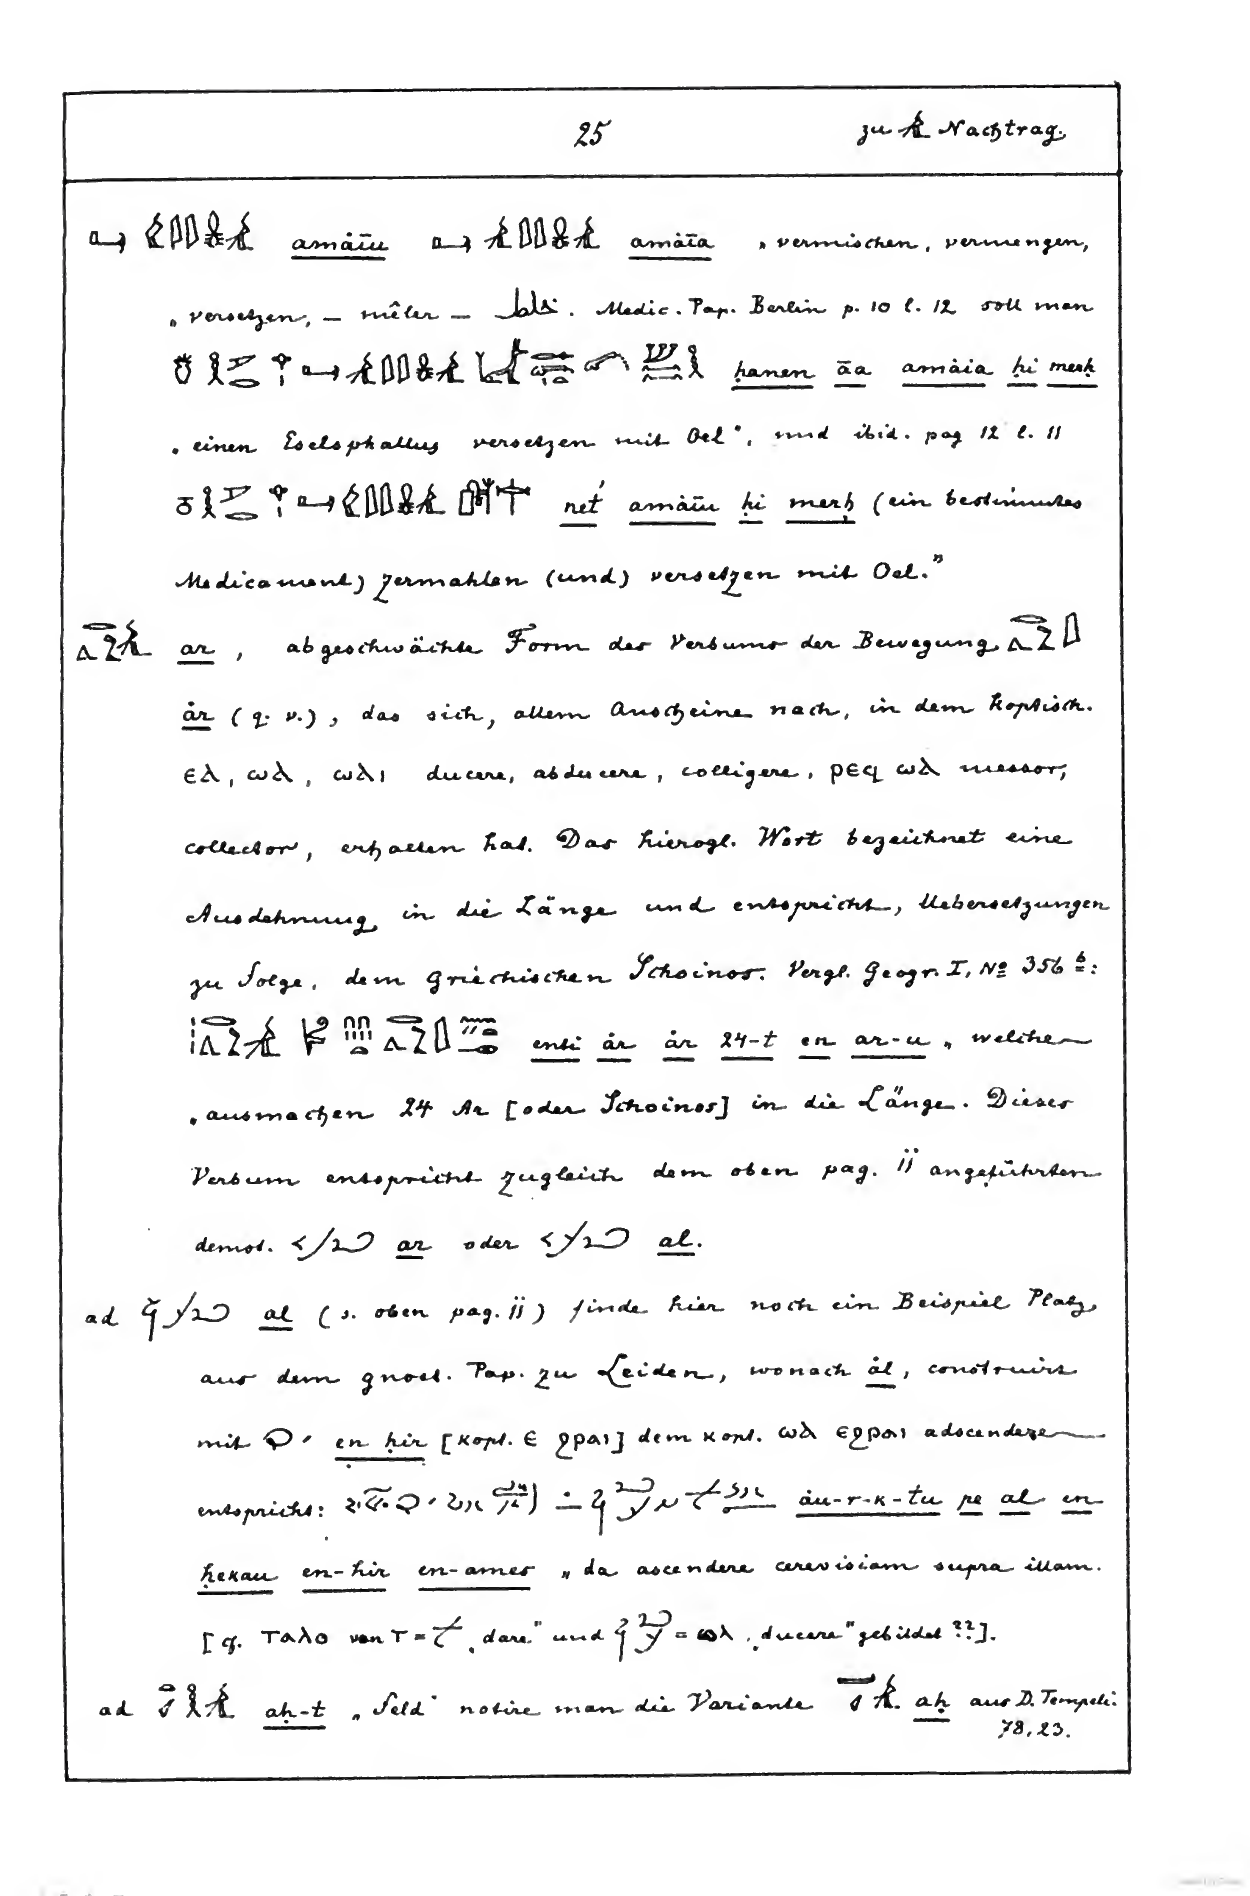 25 zu Nachtrag.
amȧı̄u amȧı̄a „ vermischen, vermengen,
„ versetzen, – mêler – خلط. Medic. Pap. Berlin p. 10 l. 12 soll man
ḥanen āa amȧia ḥi merḥ
„ einen Eselsphallus versetzen mit Oel", und ibid. pag 12 l. 11
net́ amȧı̄u ḥi merḥ (ein bestimmtes
Medicament) zermahlen (und) versetzen mit Oel."
ar, abgeschwächte Form des Verbums der Bewegung
ȧr (q. v.), das sich, allem Anscheine nach, in dem koptisch.
ⲉⲗ, ⲱⲗ, ⲱⲗⲓ ducere, abducere, colligere, ⲣⲉϥ ⲱⲗ messor,
collector, erhalten hat. Das hierogl. Wort bezeichnet eine
Ausdehnung in die Länge und entspricht, Uebersetzungen
zu Folge, dem griechischen Schoinos. Vergl. Geogr. I, Nº 356 b:
enti ȧr ȧr 24-t en ar-u „ welche
„ ausmachen 24 Ar [oder Schoinos] in die Länge. Dieses
Verbum entspricht zugleich dem oben pag. ii angeführten
demot. ar oder al.
ad al (s. oben pag. ii) finde hier noch ein Beispiel Platz,
aus dem gnost. Pap. zu Leiden, wonach ȧl, construirt
mit en ḥir [kopt. ⲉ ϩⲣⲁⲓ] dem kopt. ⲱⲗ ⲉϩⲣⲁⲓ adscendere
entspricht: ȧu-r-k-tu pe al en
ḥekau en-hir en-ames „ da ascendere cerevisiam supra illam.
[cf. ⲧⲁⲗⲟ von ⲧ = „dare" und = ⲱⲗ „ducere" gebildet ??].
ad aḥ-t „ Feld" notire man die Variante aḥ aus D. Tempeli.
78, 23.